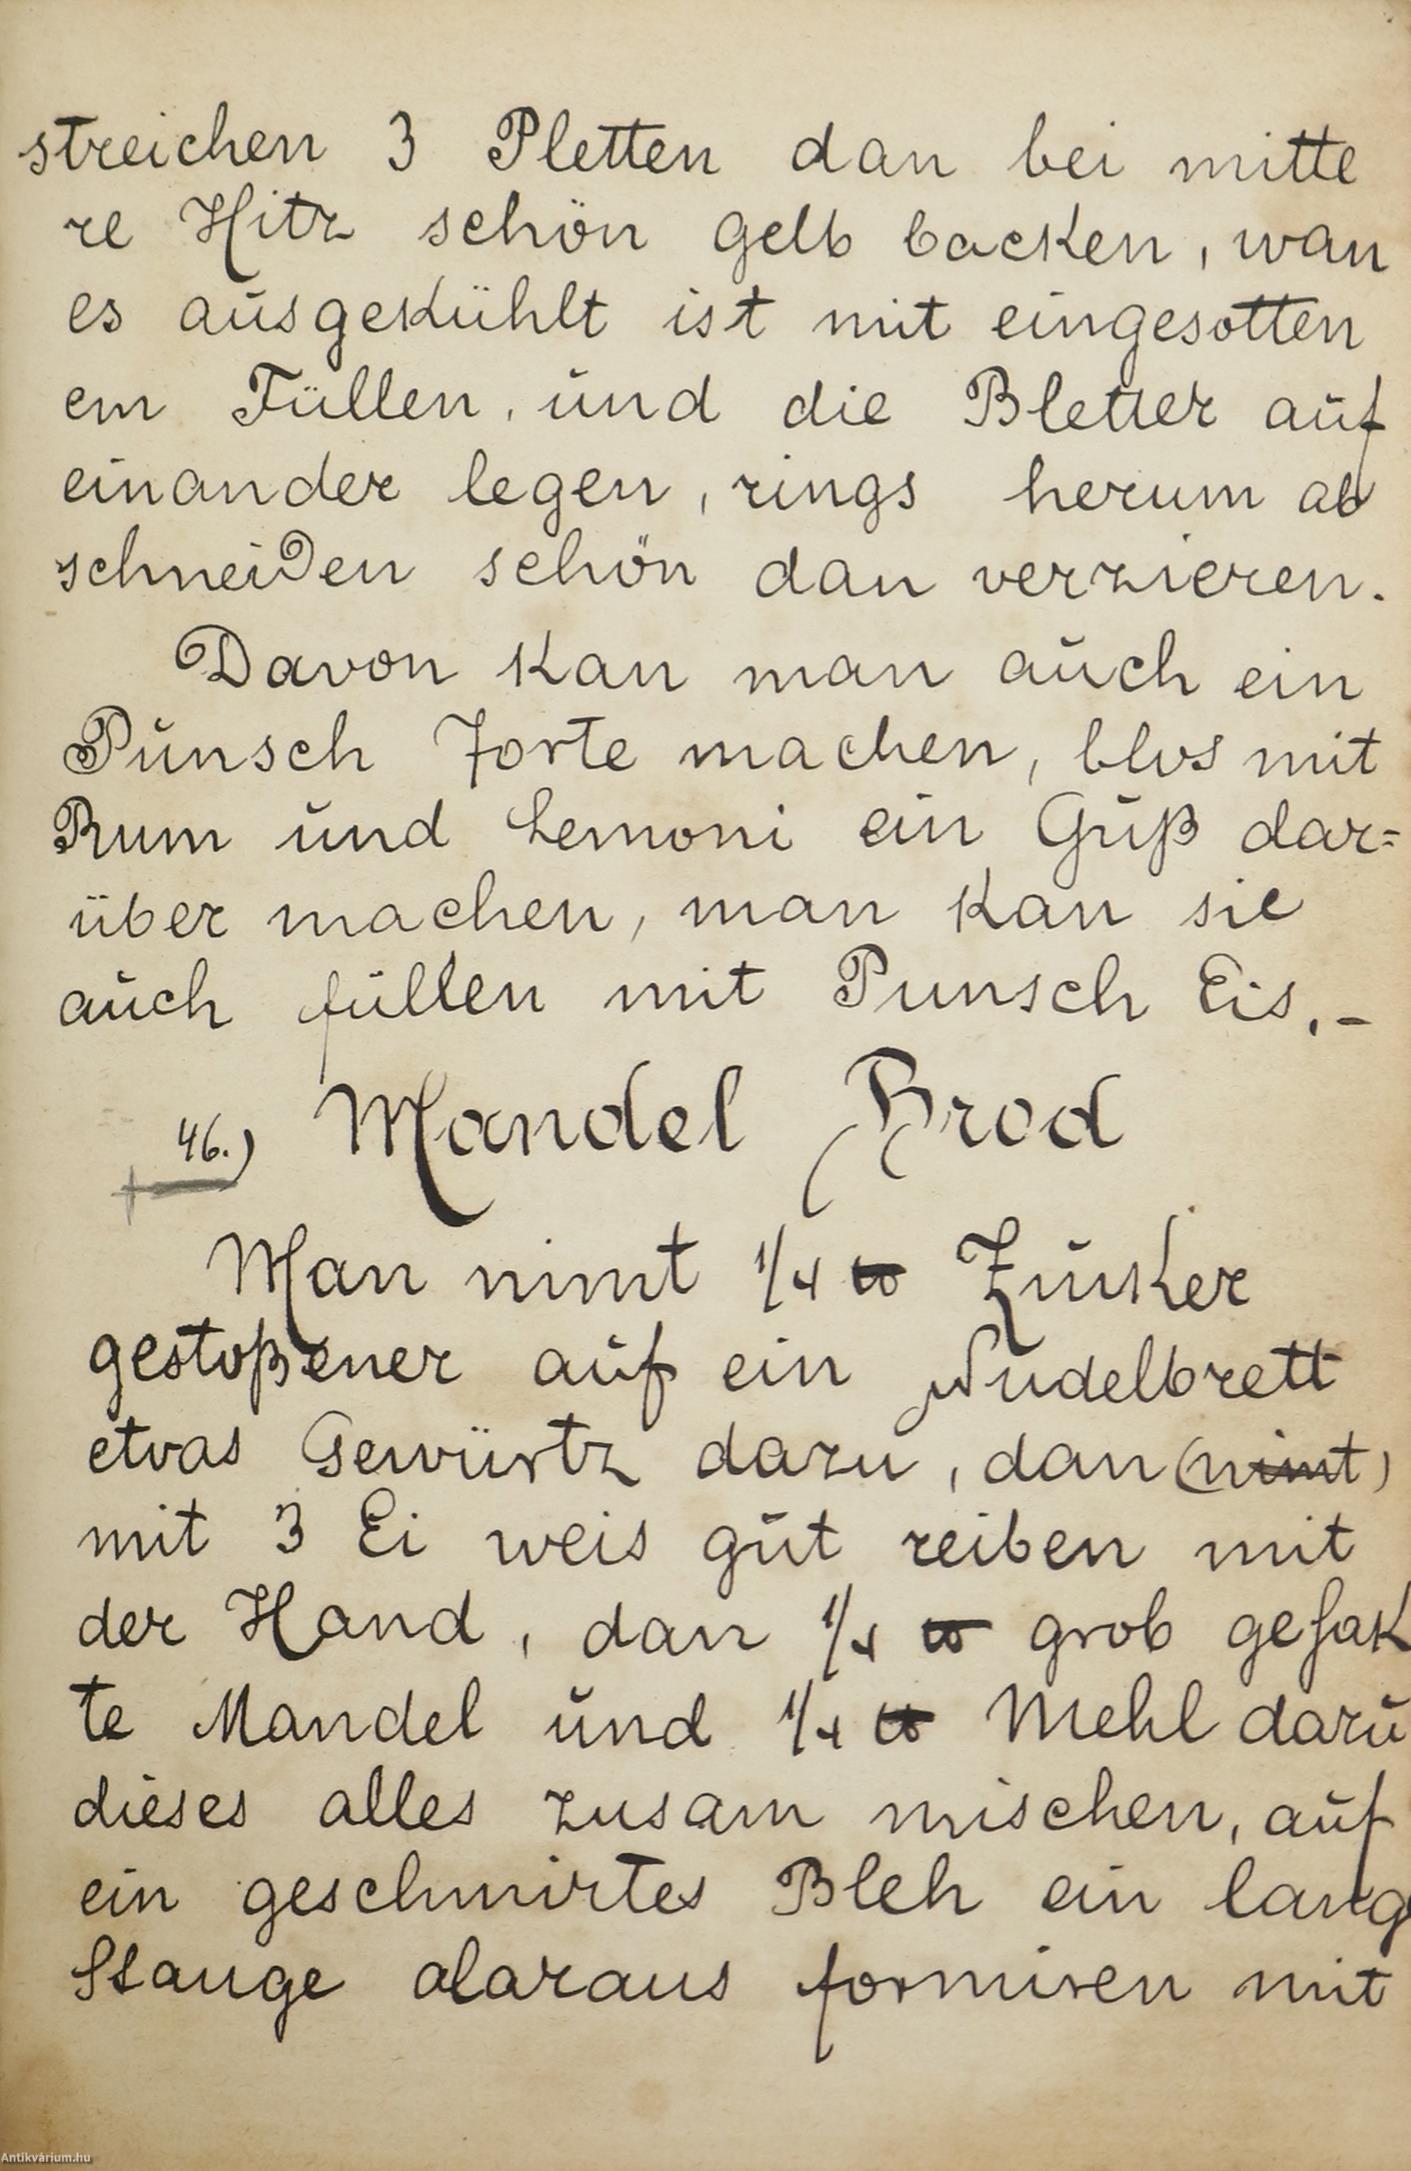 streichen 3 Pletten dan bei mitte
re Hitz schön gelb backen, wan
es ausgekühlt ist mit eingesotten
em Füllen, und die Bletter auf
einander legen, rings herum ab
schneiden schön dan verzieren.
Davon kan man auch ein
Punsch Torte machen, blos mit
Rum und Lemoni ein Guß dar=
über machen, man kan sie
auch füllen mit Punsch Eis.-
46.) Mandel Brod
Man nimt 1/4 ℔ Zucker
gestoßener auf ein Nudelbrett
etwas Gewürtz dazu, dan (nimt)
mit 3 Ei weis gut reiben mit
der Hand, dan 1/4 ℔ grob gehak
te Mandel und 1/4 ℔ Mehl dazu
dieses alles zusam mischen, auf
ein geschmirtes Bleh ein lang
Stange daraus formiren mit
Antikvárium.hu